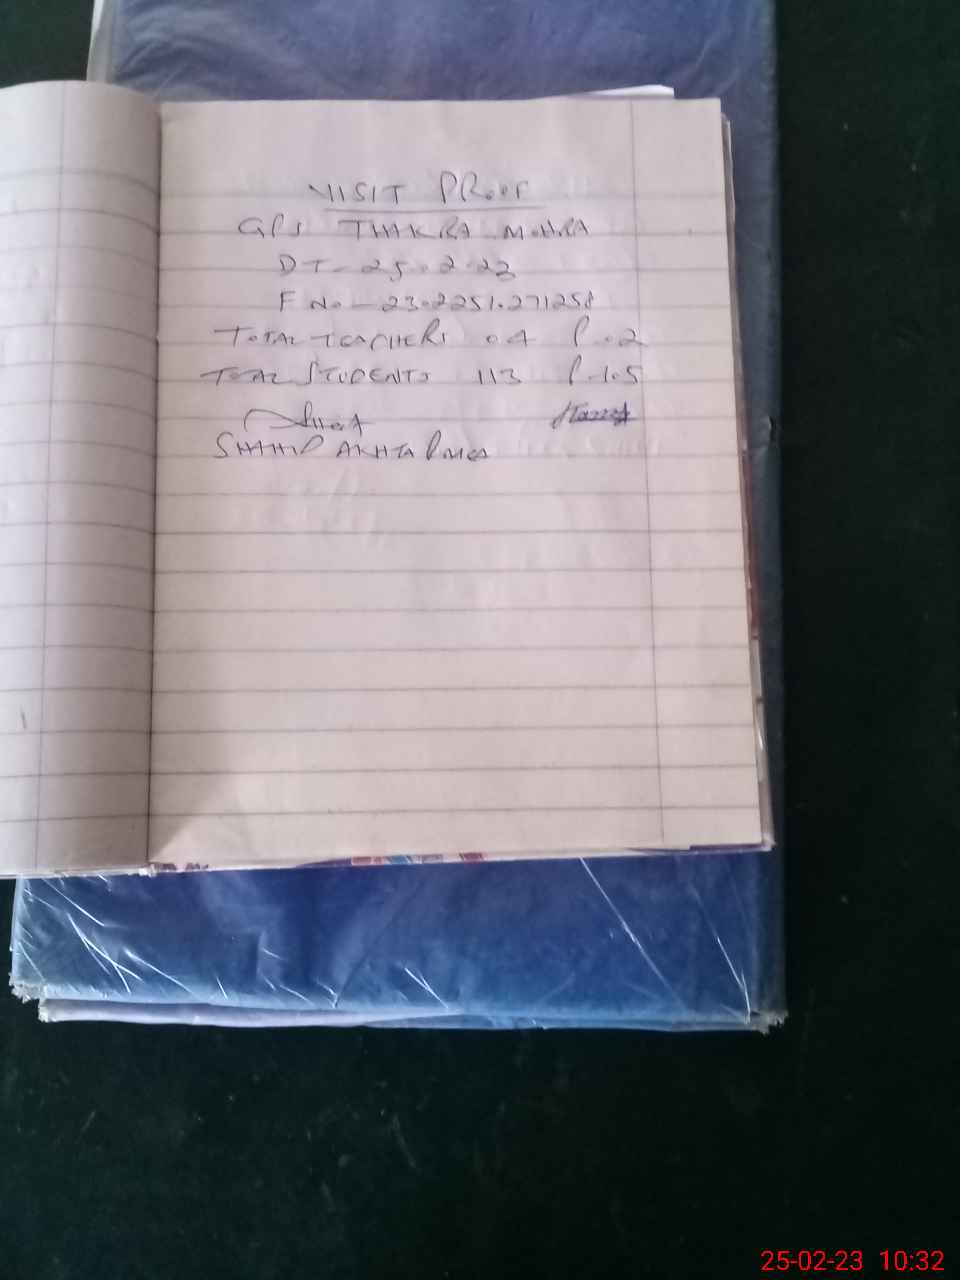 VISIT PROOF
GPS THAKRA MOHRA
DT - 25.02.23
F No - 2302251.271258
TOTAL TEACHERS 04 P.02
TOTAL STUDENTS 113 P.105
SHAHID AKHTAR MEA
25-02-23 10:32